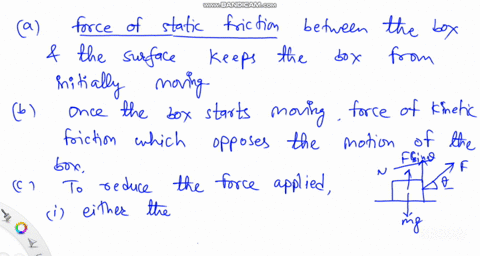 WWW.BANDICAM.COM
(a) force of static friction between the box
& the surface keeps the box from
initially moving
(b) Once the box starts moving, force of kinetic
friction which opposes the motion of the
box.
(c) To reduce the force applied,
(i) either the
N
F sinθ
F
θ
mg